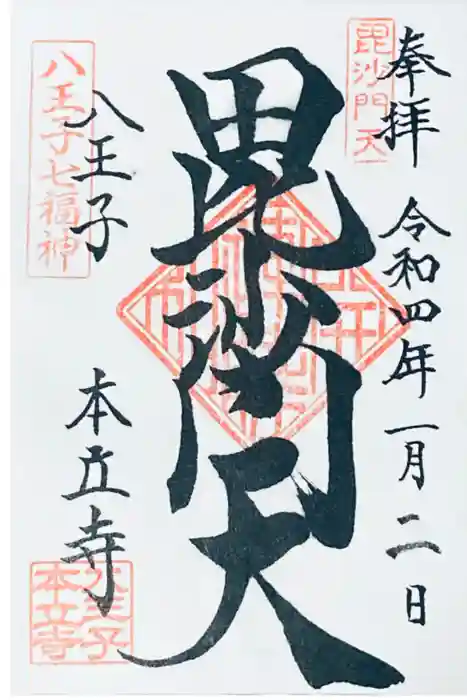 奉拝
令和四年一月二日
毘沙門天
毘沙門天
八王子
本立寺
八王子七福神
八王子
本立寺